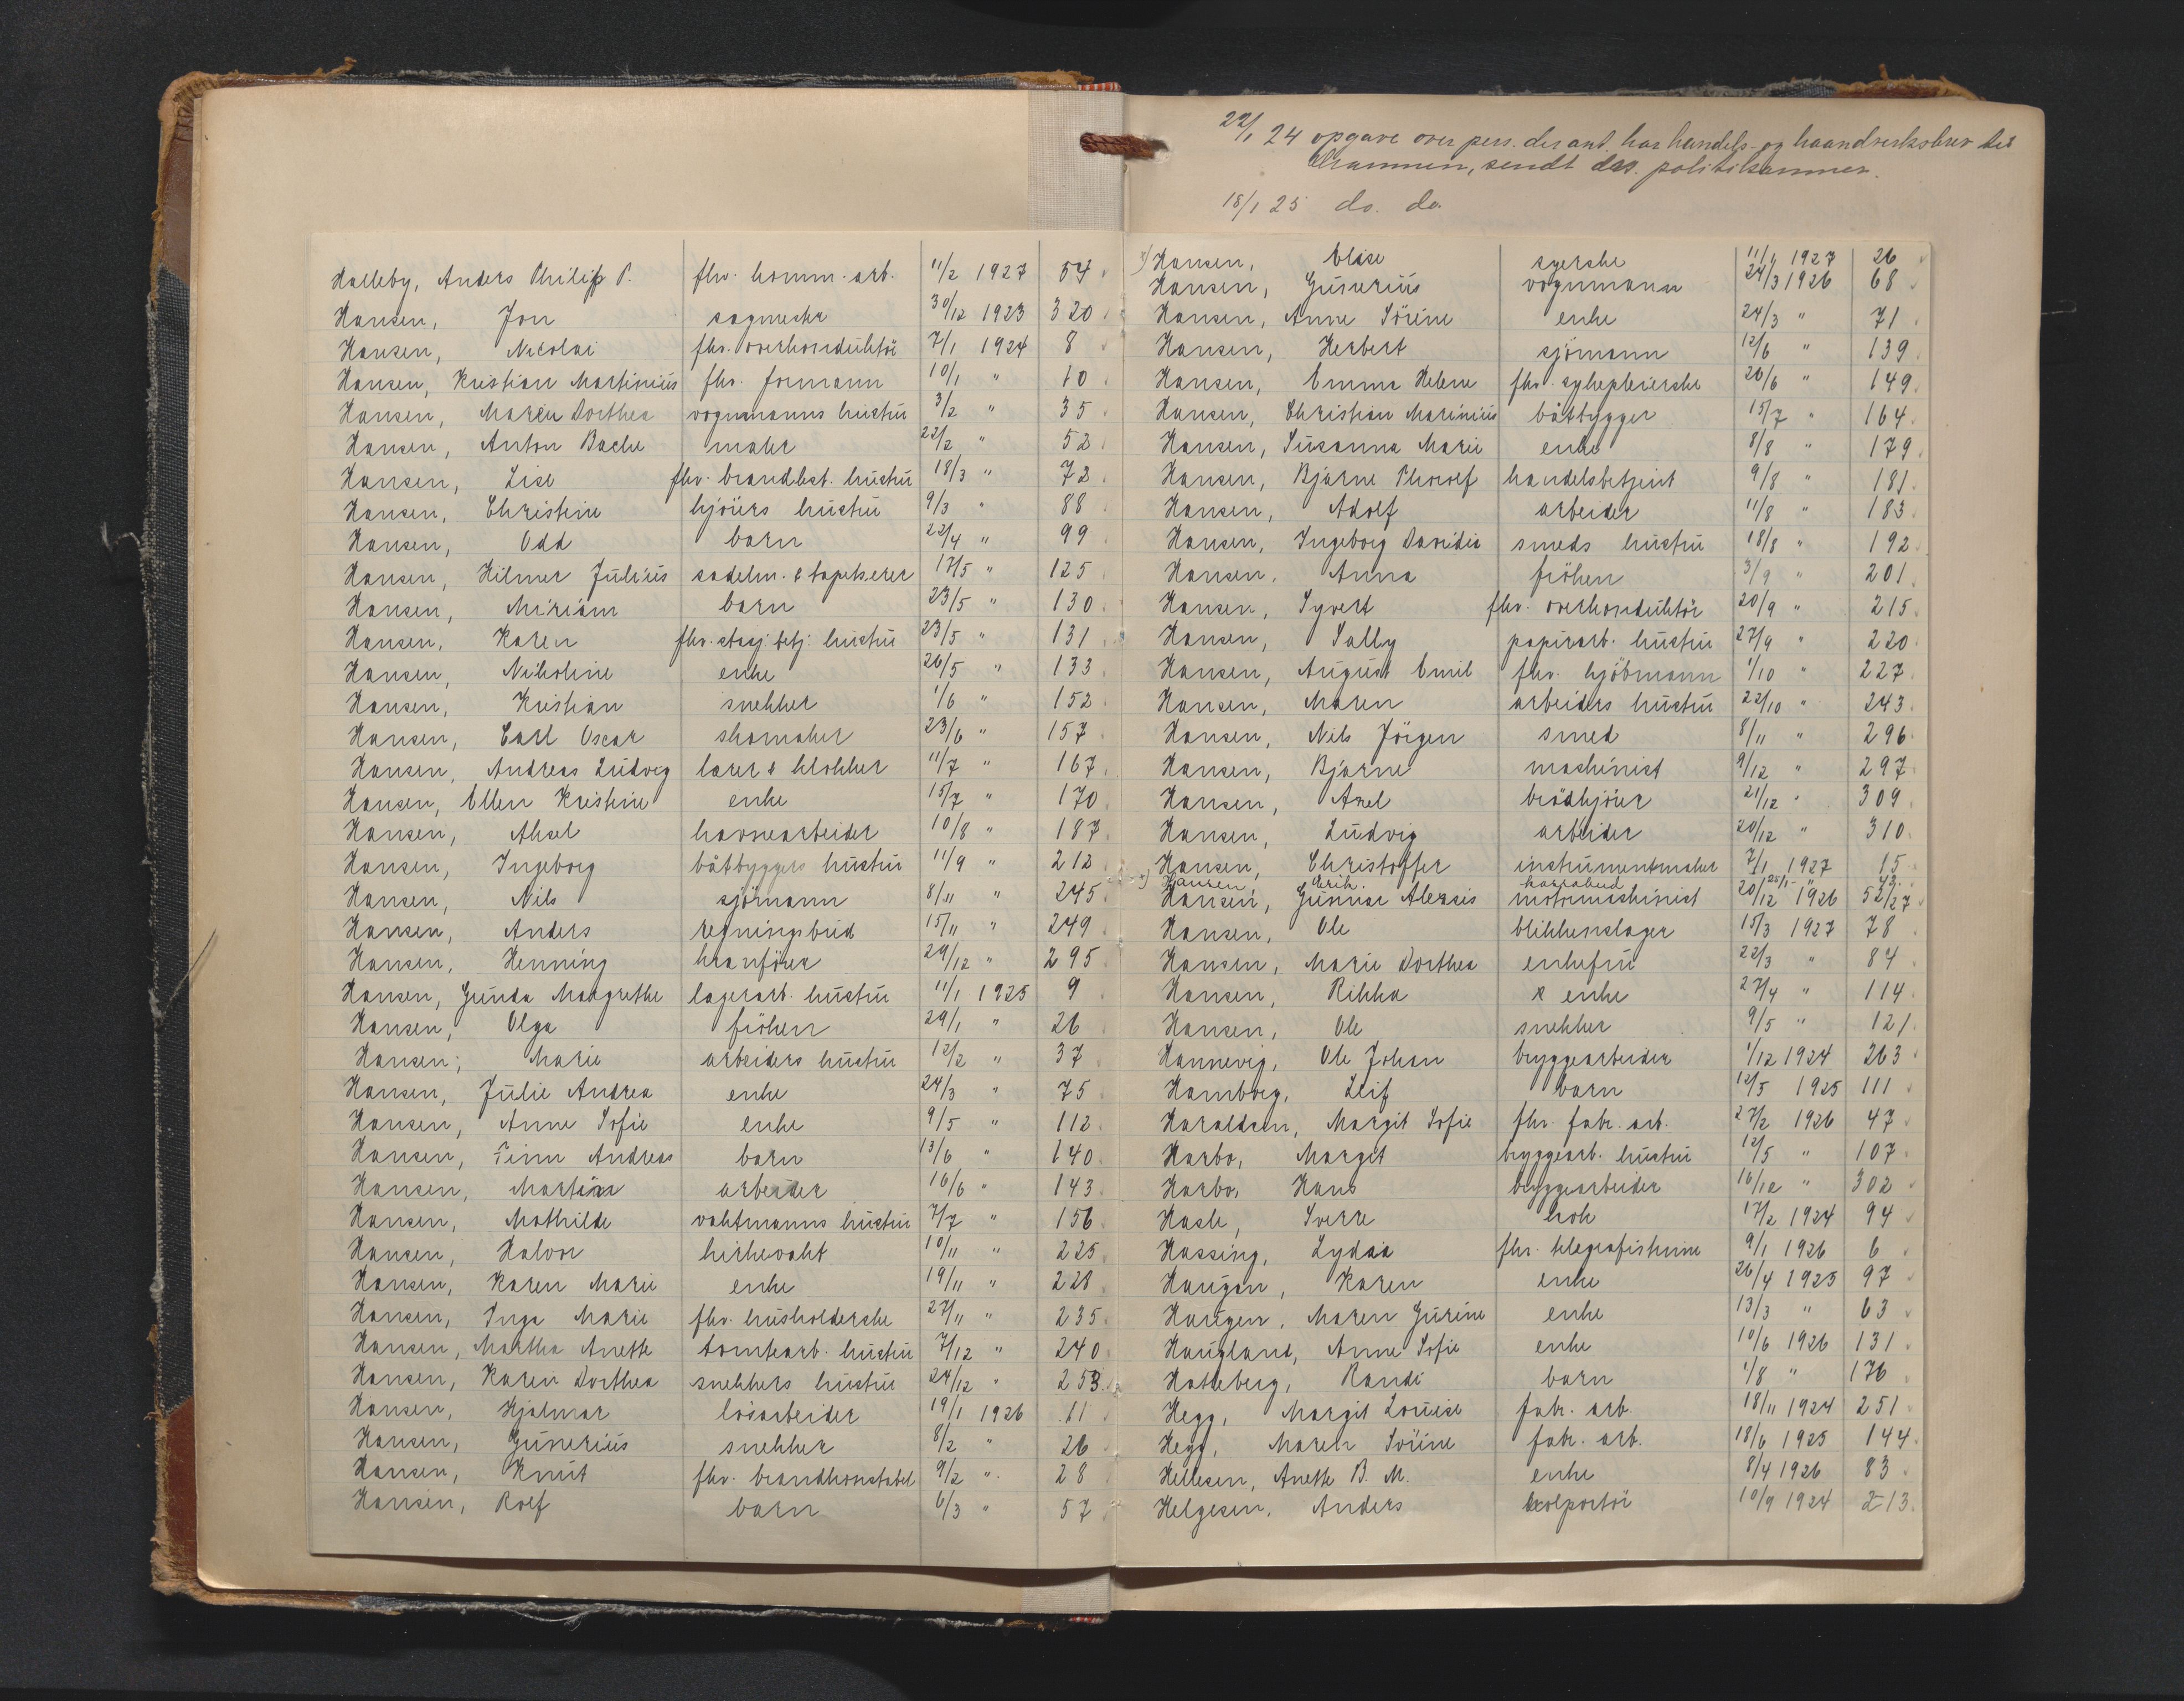 Halleby, Anders Philip P. fhv. komm. arb. 11/2 1927 54
Hansen, Jon sagmester 30/12 1923 320
Hansen, Nicolai fhv. overkonduktör 7/1 1924 8
Hansen, Kristian Martinius fhv. formann 10/1 " 10
Hansen, Maren Dorthea vognmanns hustru 3/2 " 35
Hansen, Anton Bache maler 22/2 " 52
Hansen, Lise fhv. brandbest. hustru 18/3 " 72
Hansen, Christine kjörers hustru 9/3 " 88
Hansen, Odd barn 22/4 " 99
Hansen, Hilmer Julius sadelm. & tapetserer 17/5 " 125
Hansen, Miriam barn 23/5 " 130
Hansen, Karen fhv. stasj. betj. hustru 23/5 " 131
Hansen, Nikoline enke 26/5 " 133
Hansen, Kristian snekker 1/6 " 152
Hansen, Carl Oscar skomaker 23/6 " 157
Hansen, Andreas Ludvig lærer & klokker 11/7 " 167
Hansen, Ellen Kristine enke 15/7 " 170
Hansen, Aksel havnearbeider 10/8 " 187
Hansen, Ingeborg båtbyggers hustru 11/9 " 212
Hansen, Nils sjömann 8/11 " 245
Hansen, Anders regningsbud 15/11 " 249
Hansen, Henning kranförer 29/12 " 295
Hansen, Gunda Margrethe lagerarb. hustru 11/1 1925 9
Hansen, Olga fröken 29/1 " 26
Hansen, Marie arbeiders hustru 12/2 " 37
Hansen, Julie Andrea enke 24/3 " 75
Hansen, Anne Sofie enke 9/5 " 112
Hansen, Finn Andreas barn 13/6 " 140
Hansen, Martin arbeider 16/6 " 143
Hansen, Mathilde vaktmanns hustru 7/7 " 156
Hansen, Halvor kirkevakt 10/11 " 225
Hansen, Karen Marie enke 19/11 " 228
Hansen, Inga Marie fhv. husholderske 27/11 " 235
Hansen, Martha Anette tomtearb. hustru 7/12 " 240
Hansen, Karen Dorthea snekkers hustru 24/12 " 253
Hansen, Hjalmar lösarbeider 19/1 1926 11
Hansen, Gunerius snekker 8/2 " 26
Hansen, Knut fhv. brandkonstabel 9/2 " 28
Hansen, Rolf barn 6/3 " 57
22/1 24 opgave over pers. der ant. har handels- og haandverksbrev til
Drammen, sendt politikammer.
18/1 25 do. do.
x) Hansen, Elise syerske 11/1 1927 26
Hansen, Gunerius vognmann 24/3 1926 68
Hansen, Anne Sörine enke 24/3 " 71
Hansen, Herbert sjömann 12/6 " 139
Hansen, Emma Helene fhv. sykepleierske 26/6 " 149
Hansen, Christian Marinius båtbygger 15/7 " 164
Hansen, Susanna Marie enke 8/8 " 179
Hansen, Bjarne Thorolf handelsbetjent 9/8 " 181
Hansen, Adolf arbeider 11/8 " 183
Hansen, Ingeborg Davidia smeds hustru 18/8 " 192
Hansen, Anna fröken 3/9 " 201
Hansen, Syvert fhv. overkonduktör 20/9 " 215
Hansen, Sally papirarb. hustru 27/9 " 220
Hansen, August Emil fhv. kjöbmann 1/10 " 227
Hansen, Maren arbeiders hustru 22/10 " 243
Hansen, Nils Jörgen smed 8/11 " 296
Hansen, Bjarne maskinist 9/12 " 297
Hansen, Axel brödkjörer 21/12 " 309
Hansen, Ludvig arbeider 20/12 " 310
Hansen, Christoffer instrumentmaker 7/1 1927 15
x) Hansen, Erik 25/1 " 43
Hansen, Gunnar Alexsis motormaskinist 20/12 1926 52/27
Hansen, Ole blikkenslager 15/3 1927 78
Hansen, Marie Dorthea enkefru 22/3 " 84
Hansen, Rikka enke 27/4 " 114
Hansen, Ole snekker 9/5 " 121
Hannevig, Ole Johan bryggearbeider 1/12 1924 263
Hamborg, Leif barn 12/5 1925 111
Haraldsen, Margit Sofie fhv. fabr. arb. 27/2 1926 47
Harbo, Margit bryggearb. hustru 12/5 " 107
Harbo, Hans bryggearbeider 16/12 " 302
Hasle, Sverre kok 17/2 1924 94
Hassing, Lydia fhv. telegrafistinne 9/1 1926 6
Haugan, Karen enke 26/4 1925 97
Haugen, Maren Gurine enke 13/3 " 63
Haugland, Anne Sofie enke 10/6 1926 131
Hatteberg, Randi barn 1/8 " 176
Hegg, Margit Louise fabr. arb. 18/11 1924 251
Hegg, Maren Sörine fabr. arb. 18/6 1925 144
Hellesen, Anette B. M. enke 8/4 1926 83
Helgesen, Anders kolportör 10/9 1924 213